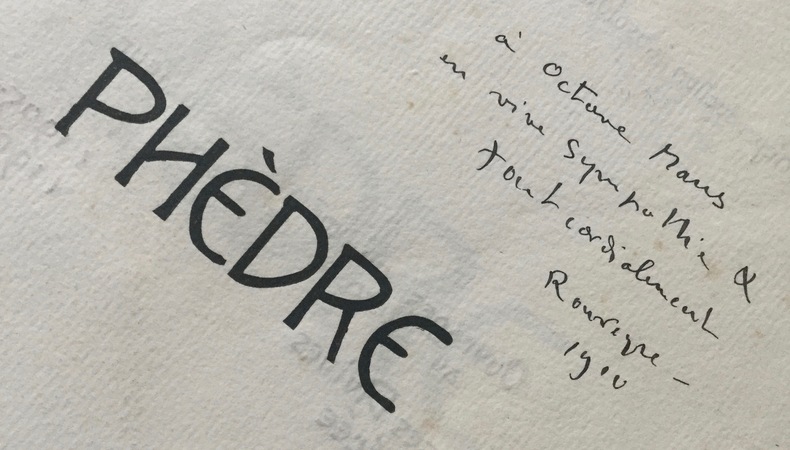 PHÈDRE
à Octave Maus
en vive sympathie &
tout cordialement
Rouveyre -
1910